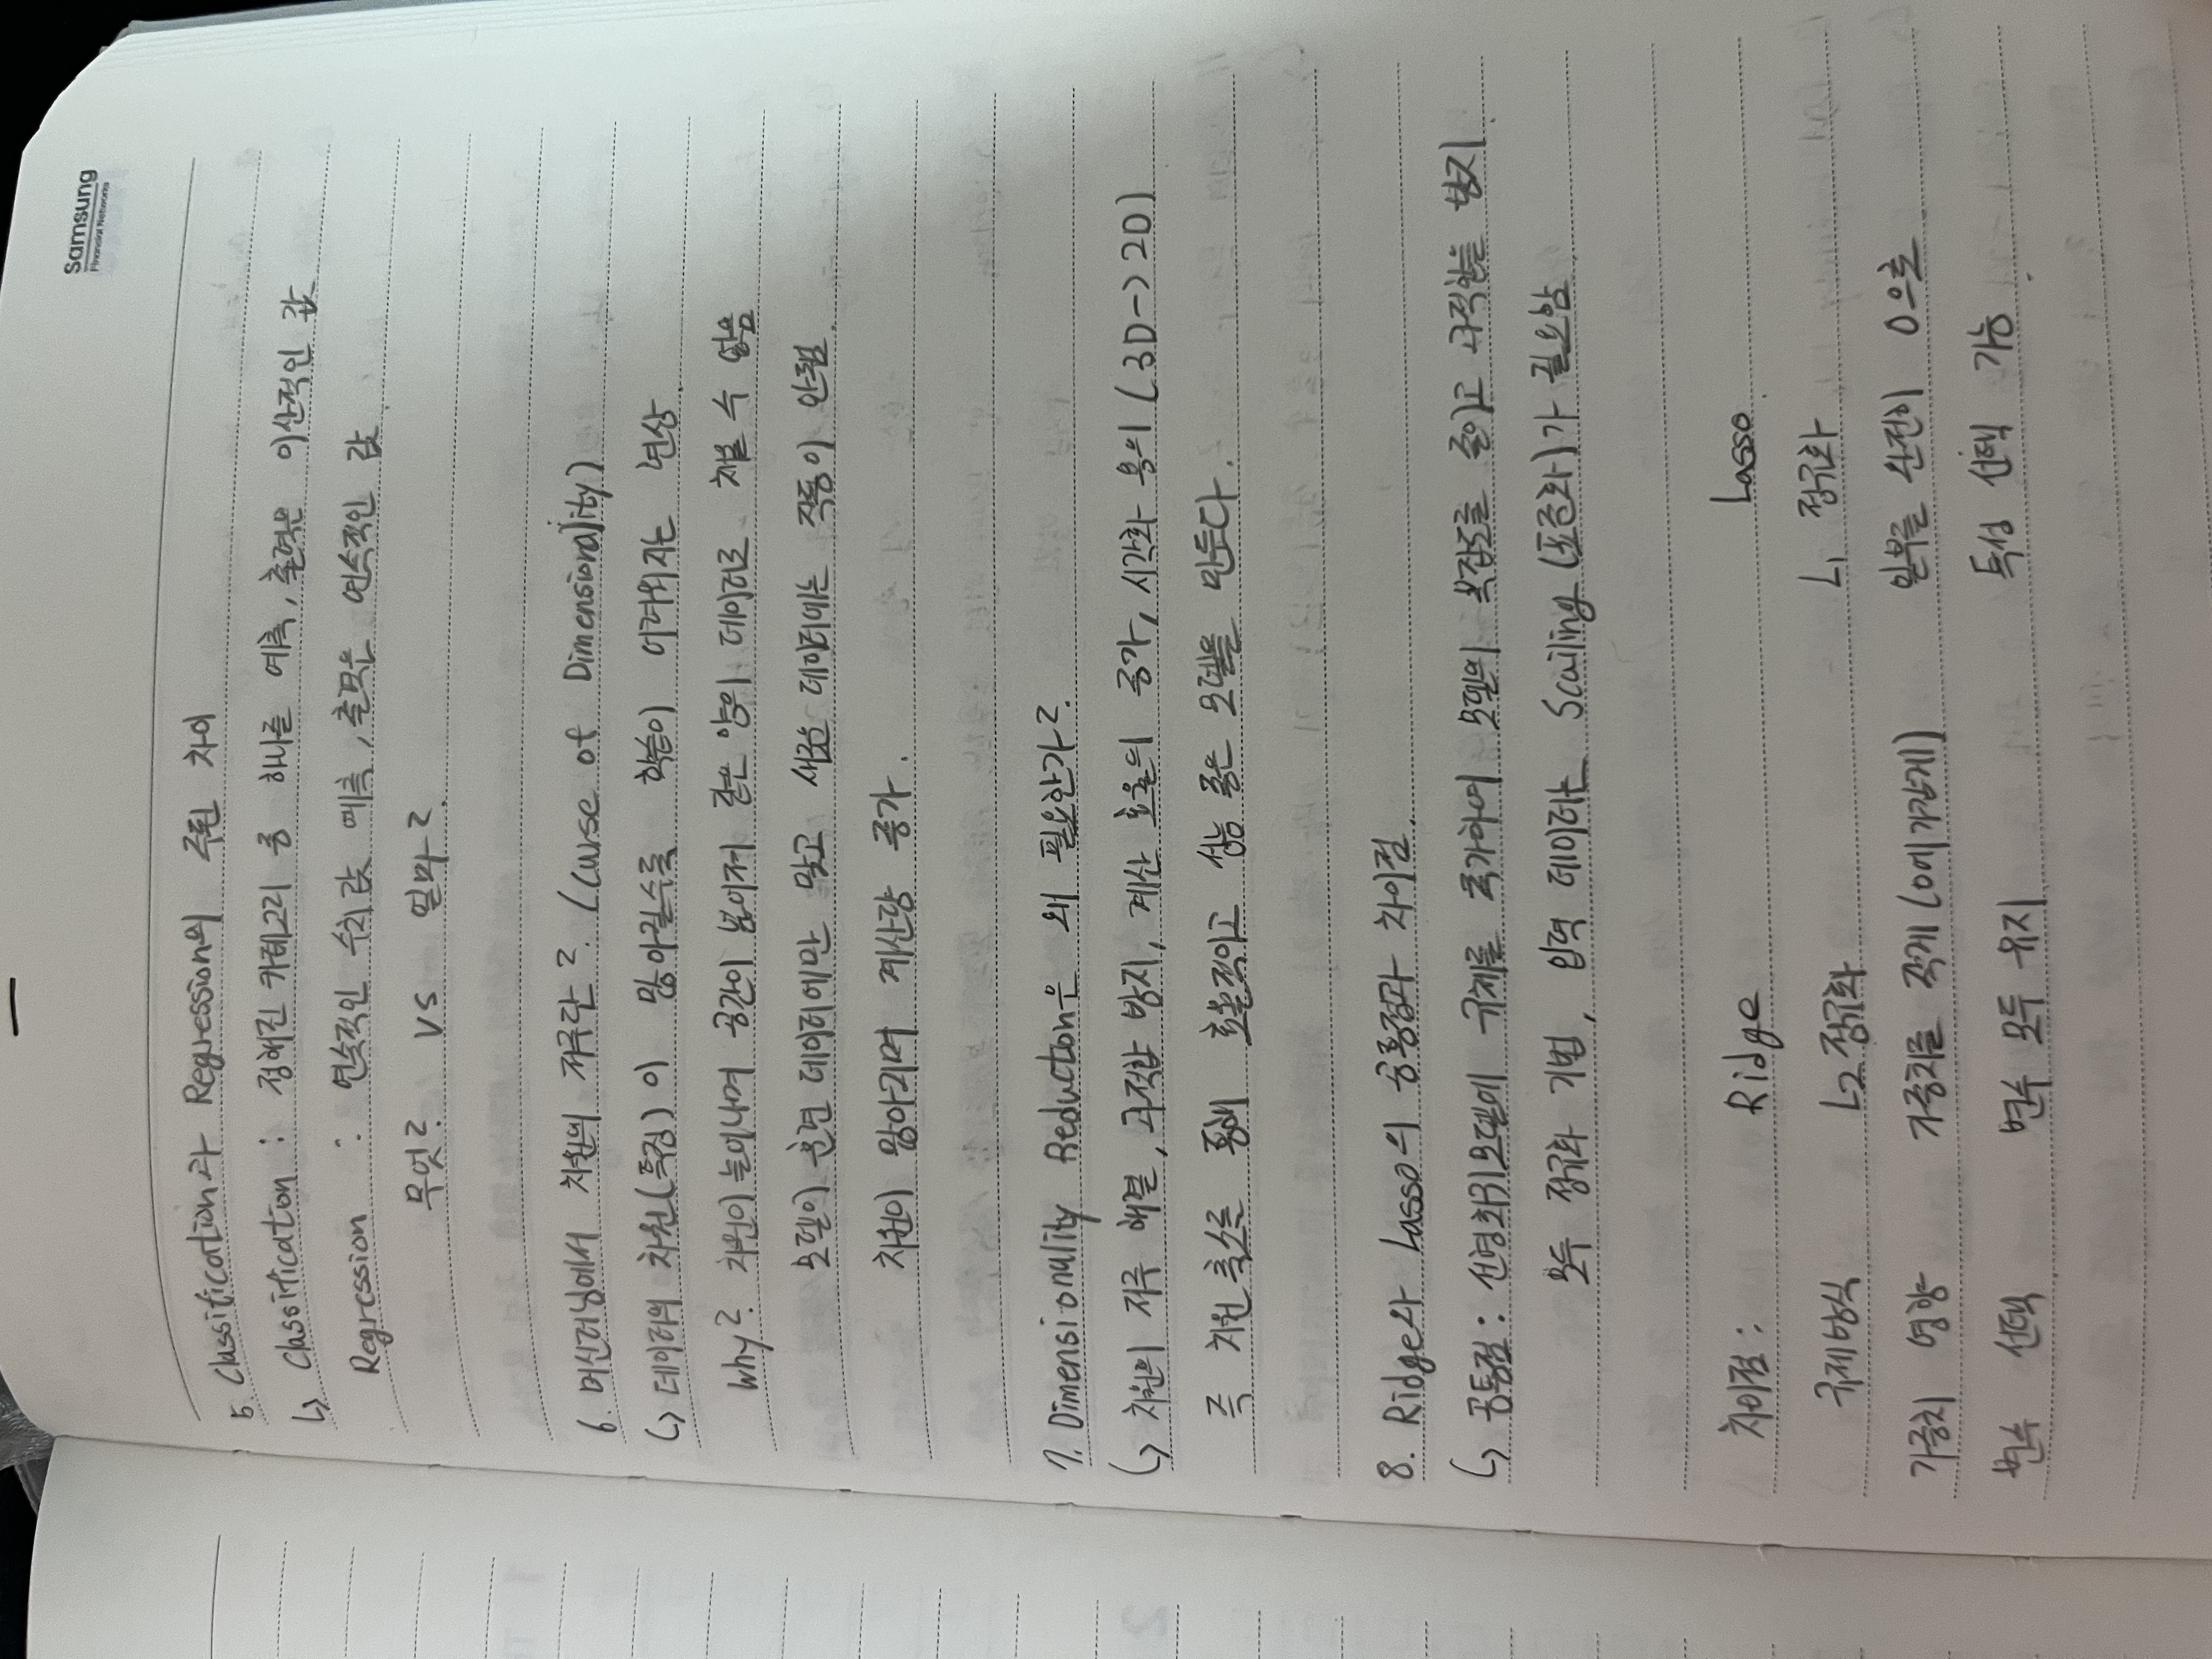 Samsung
Financial Networks
5. Classification과 Regression의 주된 차이
↳ Classification : 정해진 카테고리 중 하나를 예측, 출력은 이산적인 값
Regression : 연속적인 수치 값 예측, 출력은 연속적인 값.
무엇? VS 얼마?.
6. 머신러닝에서 차원의 저주란? (Curse of Dimensionality)
↳ 데이터의 차원(특징)이 많아질수록 학습이 어려워지는 현상.
Why? 차원이 늘어나며 공간이 넓어져 같은 양의 데이터로 채울 수 없음
모델이 훈련 데이터에만 맞고 새로운 데이터에는 작동이 안됨.
차원이 많아지며 계산량 증가.
7. Dimensionality Reducton은 왜 필요한가?
↳ 차원의 저주 해결, 과적합 방지, 계산 효율의 증가, 시각화 용의 (3D->2D)
즉 차원 축소를 통해 효율적이고 성능 좋은 모델을 만든다.
8. Ridge와 Lasso의 공통점과 차이점.
↳ 공통점 : 선형회귀모델에 규제를 추가하여 모델의 복잡도를 줄이고 과적합을 방지.
모두 정규화 기법, 입력 데이터는 Scailing (표준화)가 필요함.
차이점 : Ridge Lasso.
규제방식 L2 정규화 L1 정규화
가중치 영향 가중치를 작게 (0에 가깝게) 일부를 완전히 0으로
변수 선택 변수 모두 유지 특성 선택 가능.